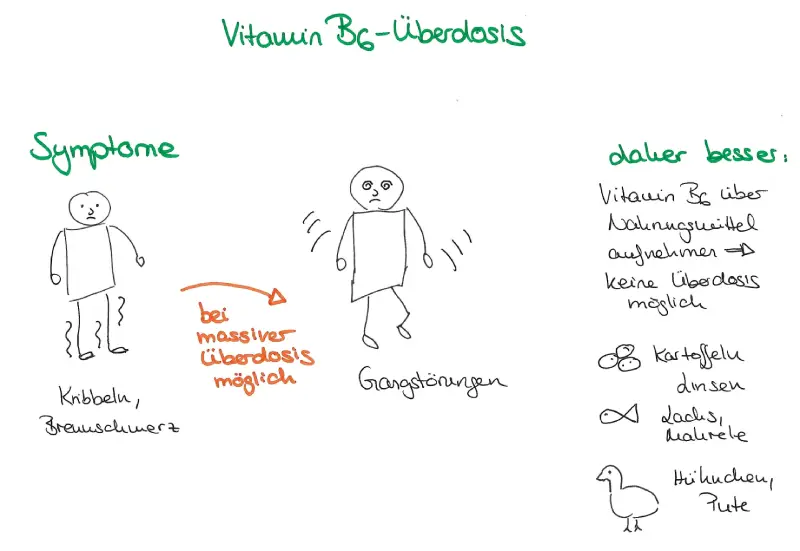 Vitamin B6-Überdosis
Symptome
Kribbeln,
Brennschmerz
bei
massiver
Überdosis
möglich
Gangstörungen
daher besser:
Vitamin B6 über
Nahrungsmittel
aufnehmen →
keine Überdosis
möglich
Kartoffeln
Linsen
Lachs,
Makrele
Hühnchen,
Pute